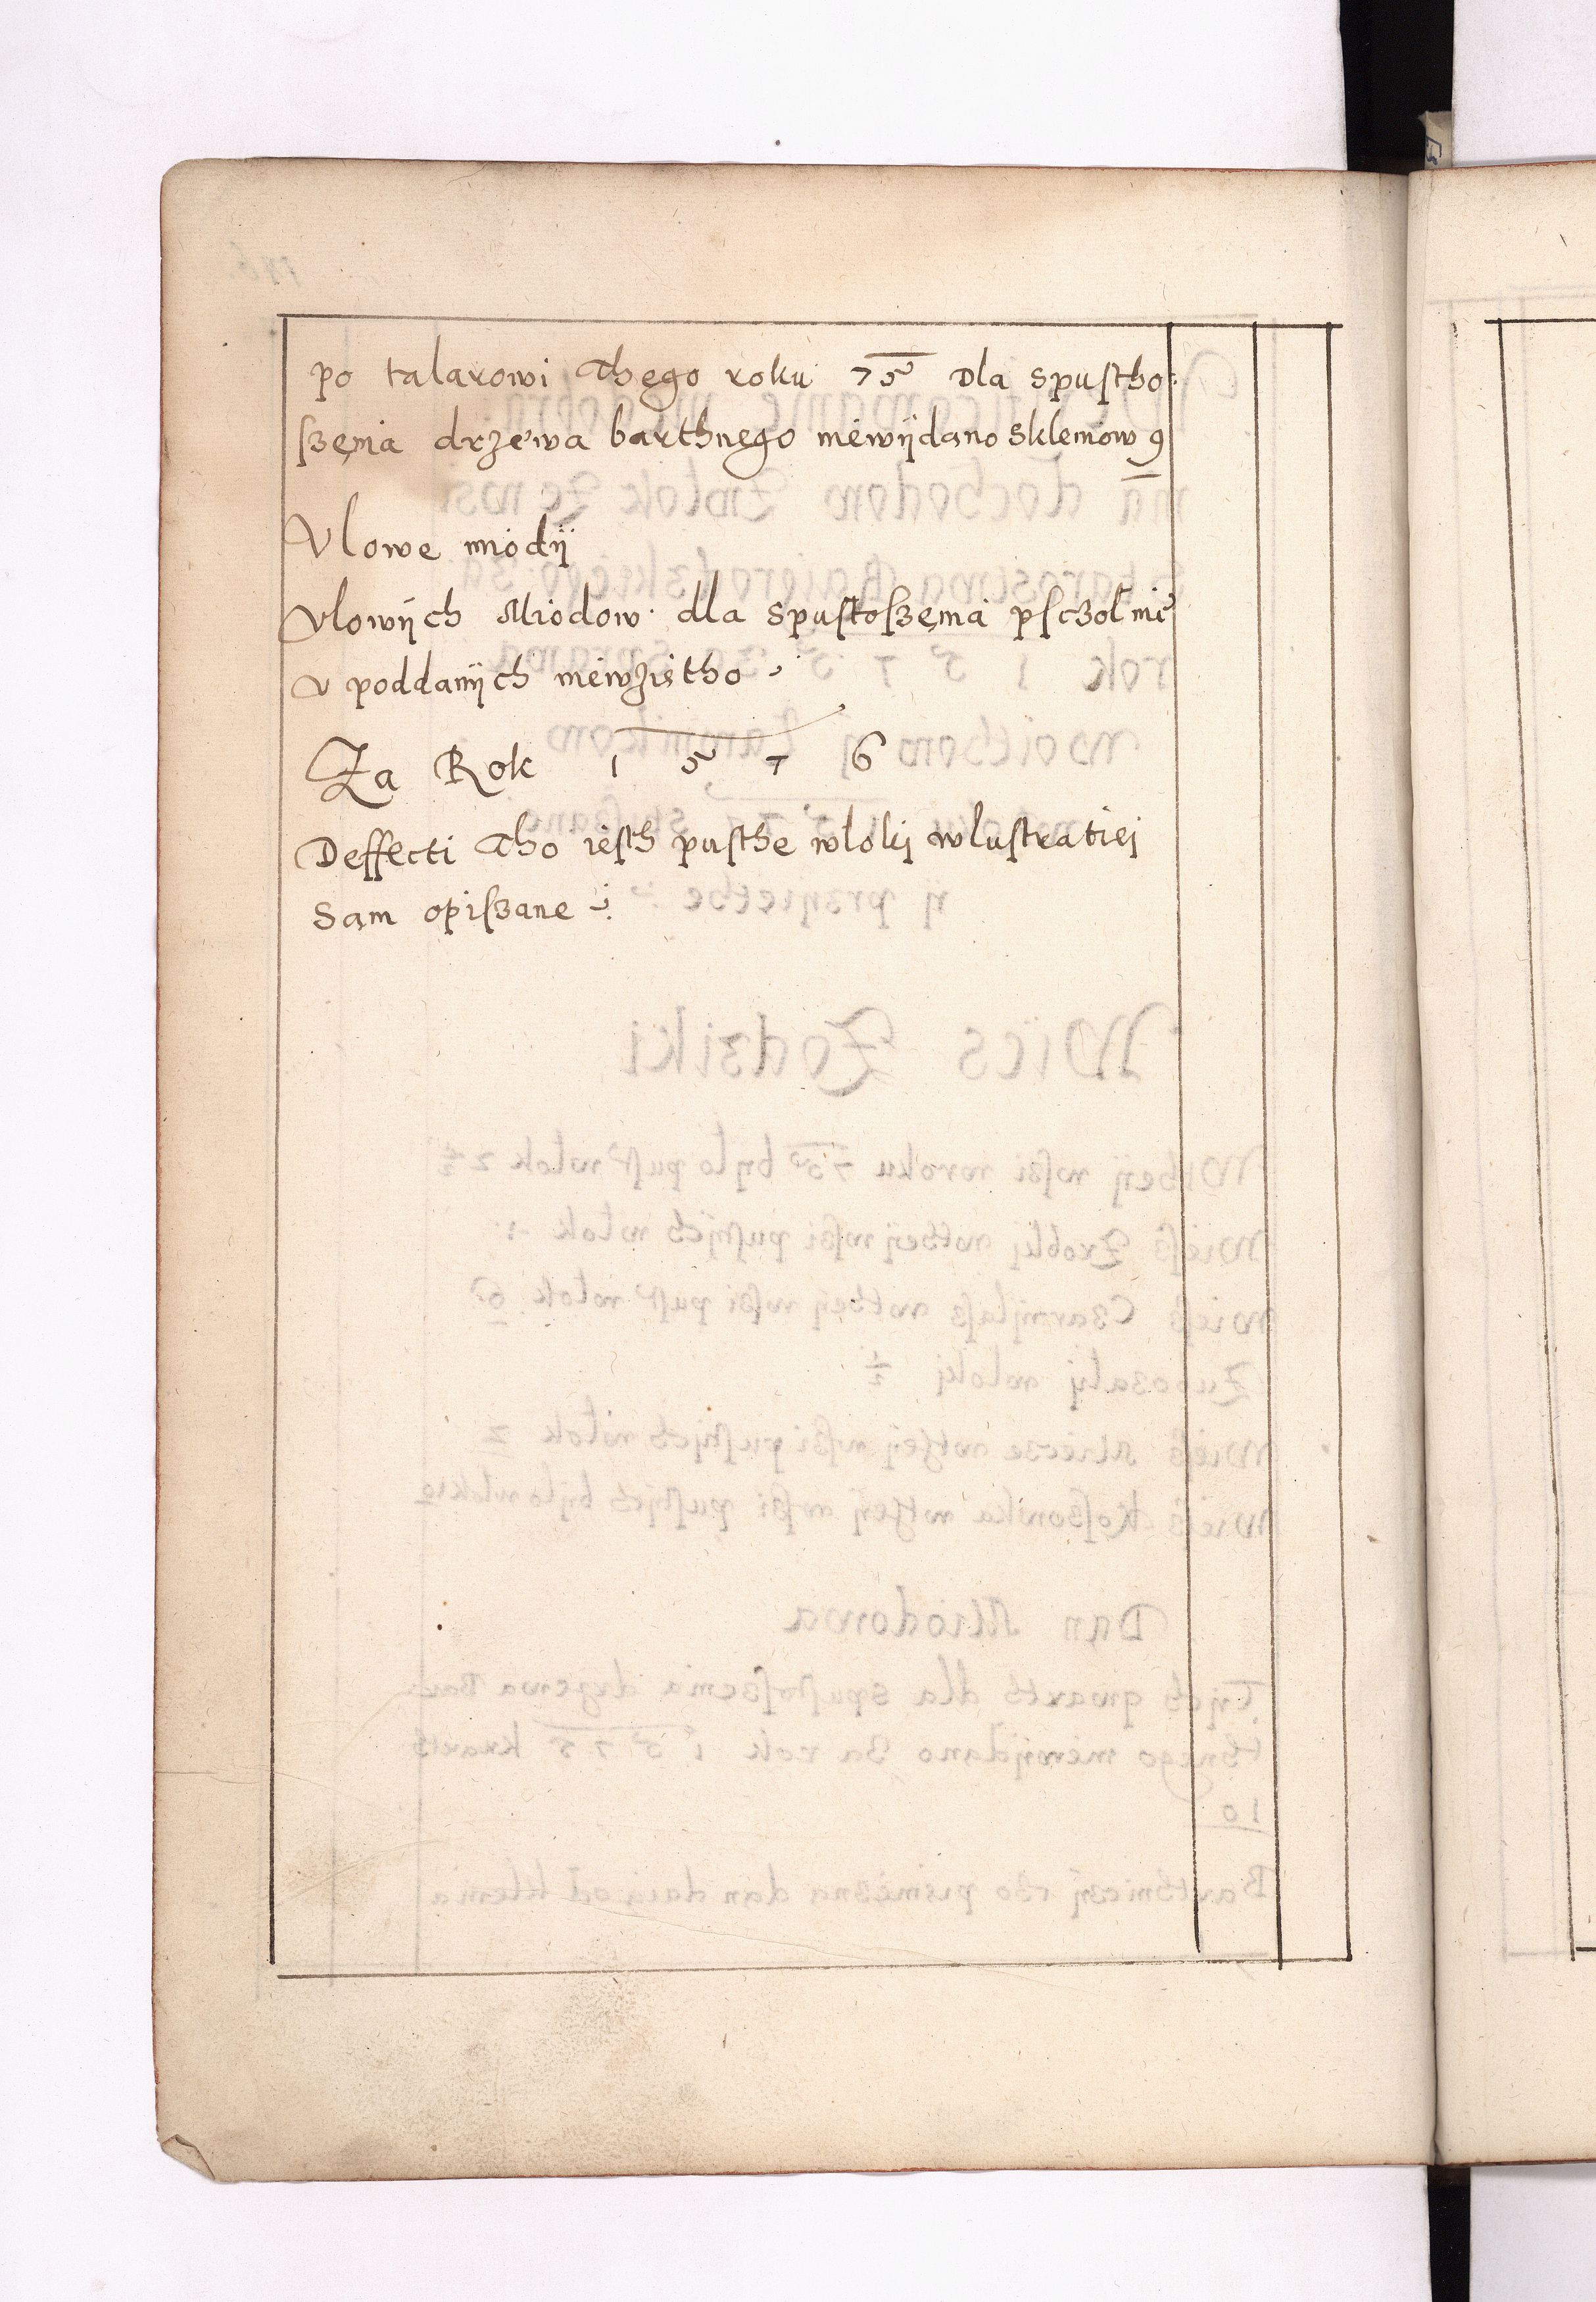 po talarowi thego roku 75 dla spustho-
szenia drzewa barthnego niewijdano skleniow 9
Vlowe miodij
Vlowijch Miodow dla spustoszenia psczol nie
v poddanijch niewzistho
Za Rok 1 5 7 6
Deffecti tho iesth pusthe wlokij wlustratiej
sam opiszane